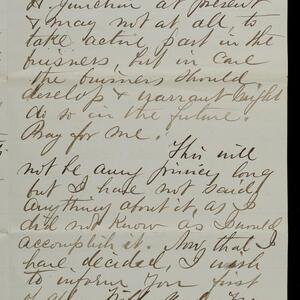 H. Junction at present
& may not at all to
take active part in the
business, but in case
the business should
develop & warrant might
do so in the future.
Pray for me!
This will
not be any joking long
but I have not said
anything about it, as I
did not know as I would
accomplish it. Now, that I
have decided, I wish
to inform You first
of all.